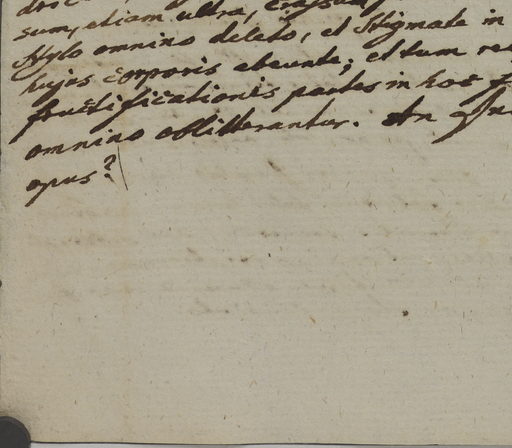 sum, etiam ultra, crassum
Stylo omnino deleto, et Stygmate in
hujus corporis abeunte; et tum re
fructificationis partes in hoc f
omnino oblitterantur. An
opus?